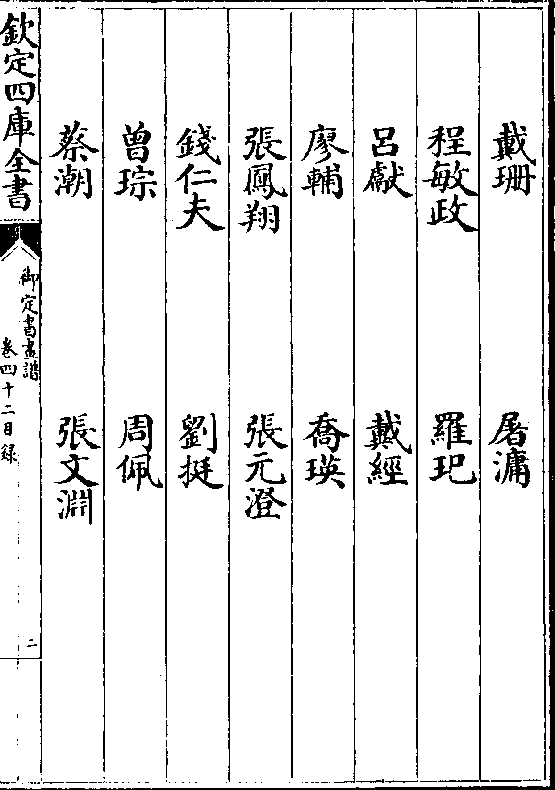 戴珊　屠滽
程敏政　羅玘
呂獻　戴經
廖輔　喬瑛
張鳳翔　張元澄
錢仁夫　劉挺
曾琮　周佩
蔡潮　張文淵
欽定四庫全書
御定書畫譜
卷四十二目錄
二